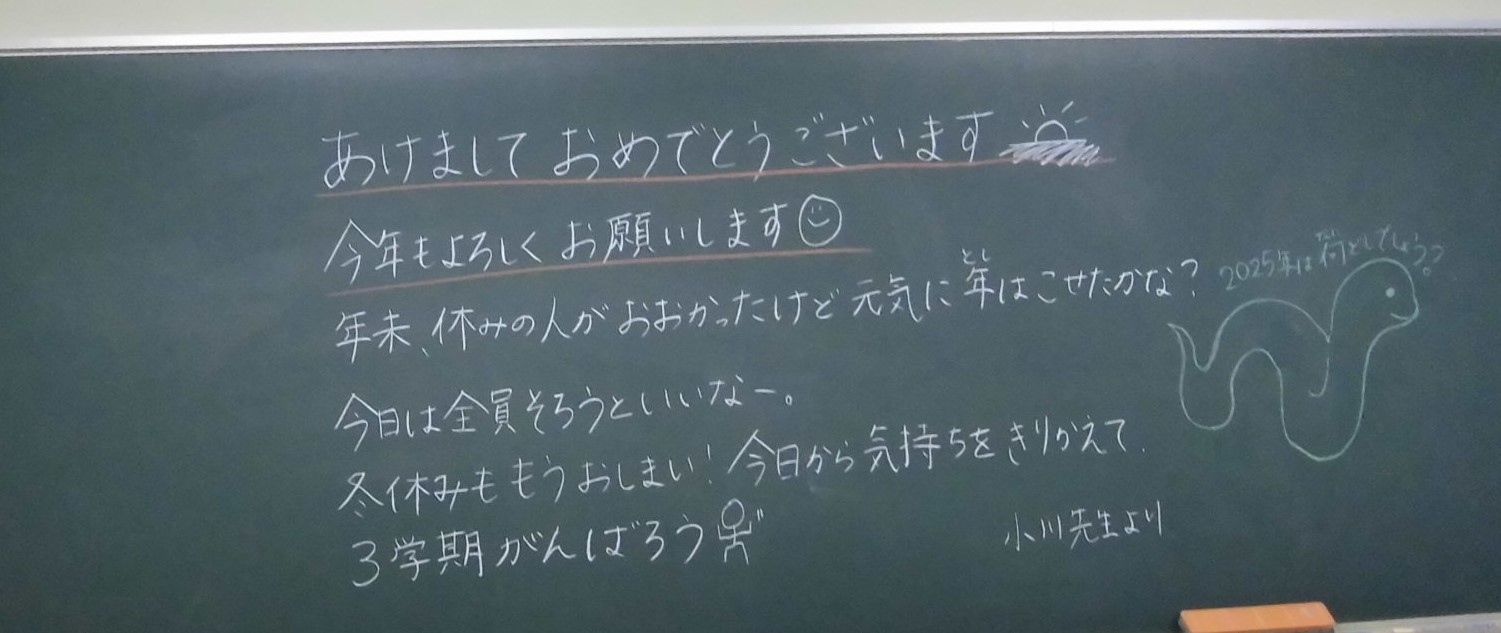 あけましておめでとうございます
今年もよろしくお願いします
年末、休みの人がおおかったけど元気に年はこせたかな?
とし
2025年は何としでしょう?
今日は全員そろうといいなー。
冬休みももうおしまい!今日から気持ちをきりかえて、
3学期がんばろう
小川先生より